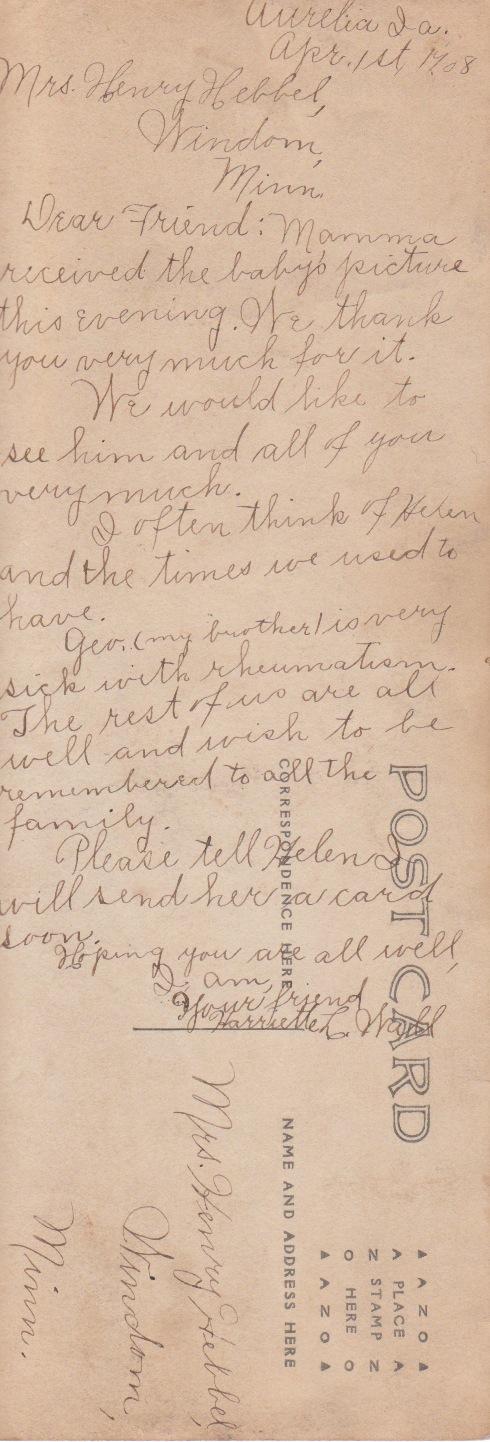 Aurelia Ia.
Apr. 1st, 1908
Mrs. Henry Hebbel,
Windom,
Minn.
Dear Friend: Mamma
received the baby's picture
this evening. We thank
you very much for it.
We would like to
see him and all of you
very much.
I often think of Helen
and the times we used to
have.
Geo. (my brother) is very
sick with rheumatism.
The rest of us are all
well and wish to be
remembered to all the
family.
Please tell Helen I
will send her a card
soon.
Hoping you are all well,
I am,
Your friend
Harriette L.
POST CARD
CORRESPONDENCE HERE
NAME AND ADDRESS HERE
AZO
PLACE
STAMP
HERE
AZO
Mrs. Henry Hebbel,
Windom,
Minn.